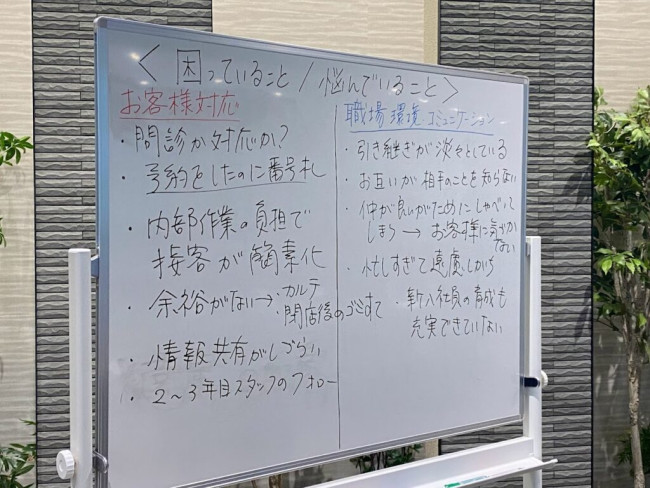 ＜困っていること/悩んでいること＞
お客様対応
・問診か対応か?
・予約をしたのに番号札
・内部作業の負担で
接客が簡素化
・余裕がない→・カルテ
・閉店後のゴミすて
・情報共有がしづらい
・2〜3年目スタッフのフォロー
職場環境・コミュニケーション
・引き継ぎが淡々としている
・お互いが相手のことを知らない
・仲が良いがためにしゃべって
しまう→お客様に気づか
ない
・忙しすぎて遠慮しがち
・新入社員の育成も
充実できていない